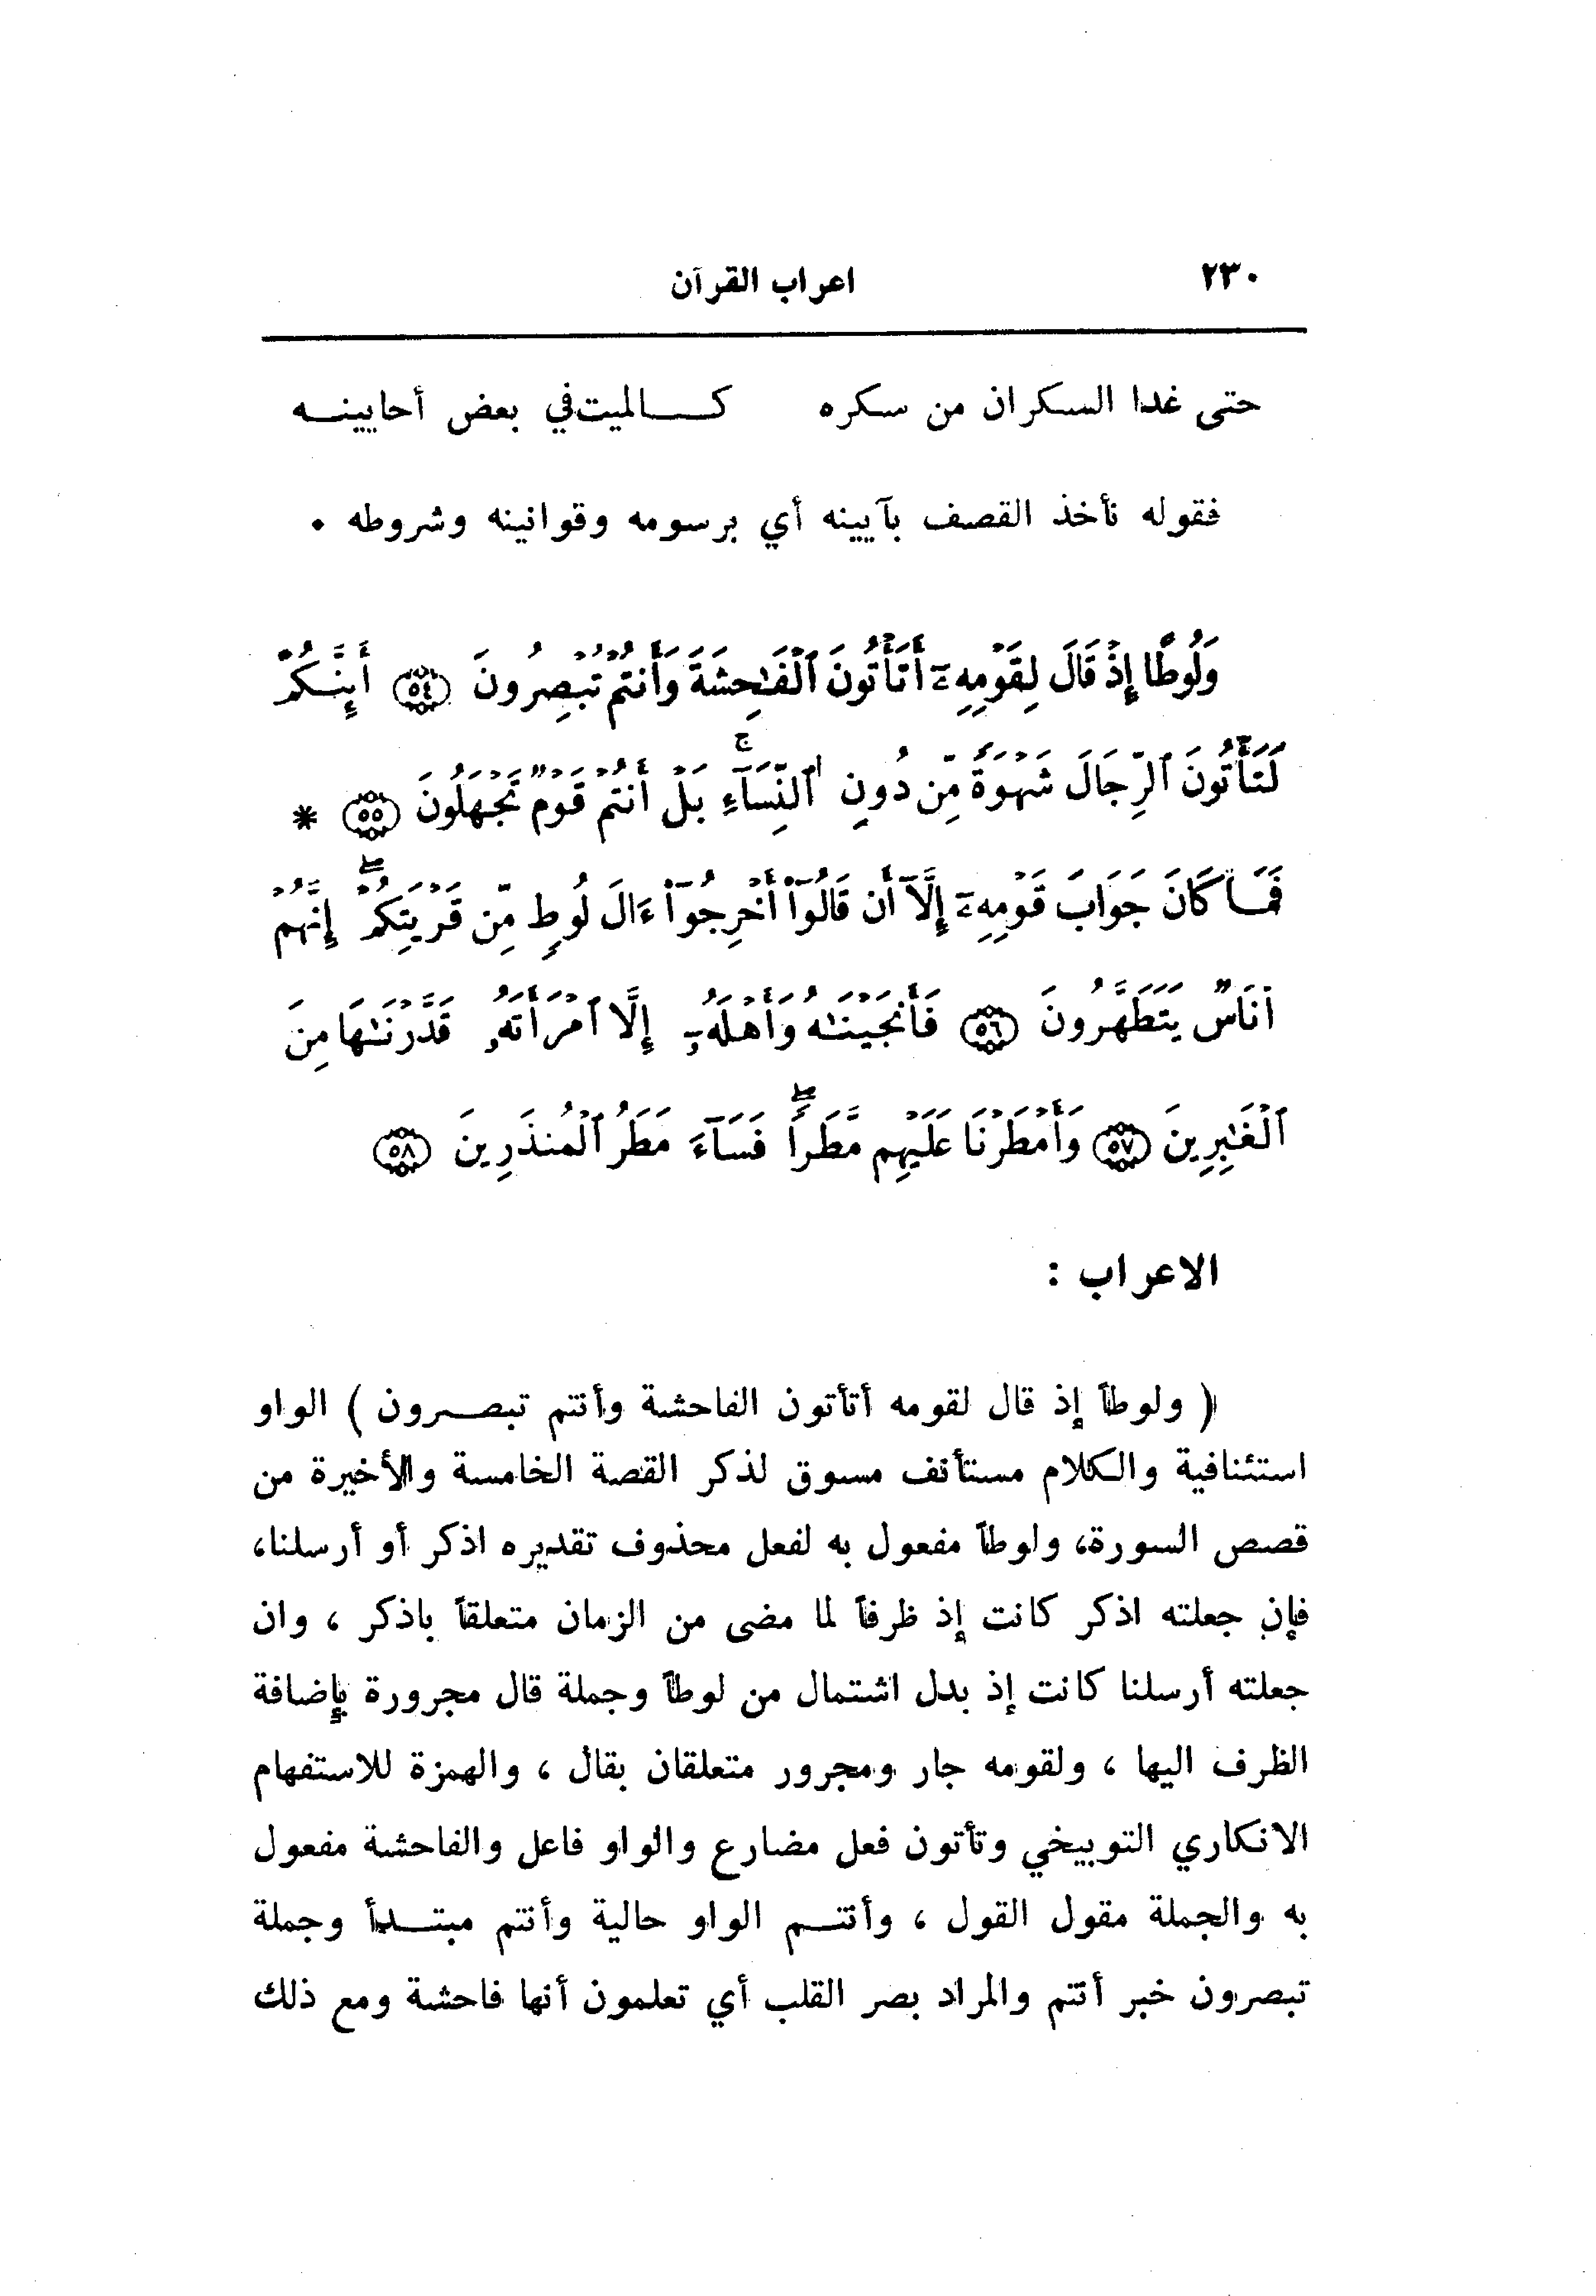 ٢٣٠
اعراب القرآن
حتى غدا السكران من سكره كالميت في بعض أحايينه
فقوله نأخذ القصف بآيينه أي برسومه وقوانينه وشروطه .
وَلُوطًا إِذْ قَالَ لِقَوْمِهِۦٓ أَتَأْتُونَ ٱلْفَٰحِشَةَ وَأَنتُمْ تُبْصِرُونَ ﴿٥٤﴾ أَئِنَّكُمْ
لَتَأْتُونَ ٱلرِّجَالَ شَهْوَةً مِّن دُونِ ٱلنِّسَآءِ ۚ بَلْ أَنتُمْ قَوْمٌ تَجْهَلُونَ ﴿٥٥﴾ *
فَمَا كَانَ جَوَابَ قَوْمِهِۦٓ إِلَّآ أَن قَالُوٓا۟ أَخْرِجُوٓا۟ ءَالَ لُوطٍ مِّن قَرْيَتِكُمْ ۖ إِنَّهُمْ
أُنَاسٌ يَتَطَهَّرُونَ ﴿٥٦﴾ فَأَنجَيْنَٰهُ وَأَهْلَهُۥٓ إِلَّا ٱمْرَأَتَهُۥ قَدَّرْنَٰهَا مِنَ
ٱلْغَٰبِرِينَ ﴿٥٧﴾ وَأَمْطَرْنَا عَلَيْهِم مَّطَرًا ۖ فَسَآءَ مَطَرُ ٱلْمُنذَرِينَ ﴿٥٨﴾
الاعراب :
( ولوطاً إذ قال لقومه أتأتون الفاحشة وأنتم تبصرون ) الواو
استئنافية والكلام مستأنف مسوق لذكر القصة الخامسة والأخيرة من
قصص السورة، ولوطاً مفعول به لفعل محذوف تقديره اذكر أو أرسلنا،
فإن جعلته اذكر كانت إذ ظرفاً لما مضى من الزمان متعلقاً باذكر ، وان
جعلته أرسلنا كانت إذ بدل اشتمال من لوطاً وجملة قال مجرورة بإضافة
الظرف اليها ، ولقومه جار ومجرور متعلقان بقال ، والهمزة للاستفهام
الانكاري التوبيخي وتأتون فعل مضارع والواو فاعل والفاحشة مفعول
به والجملة مقول القول ، وأنتم الواو حالية وأنتم مبتدأ وجملة
تبصرون خبر أنتم والمراد بصر القلب أي تعلمون أنها فاحشة ومع ذلك